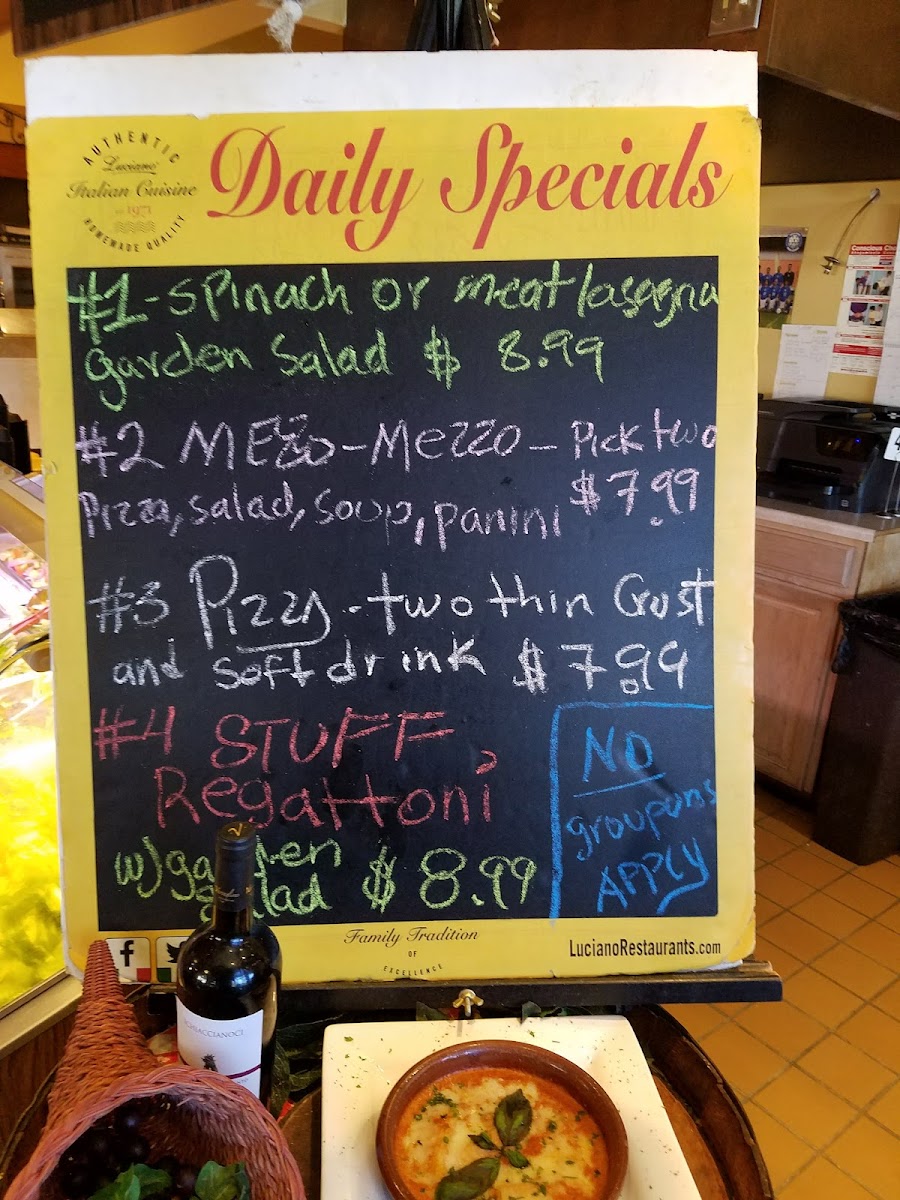 AUTHENTIC
Luciano
Italian Cuisine
1971
HOMEMADE QUALITY
Daily Specials
#1-spinach or meat lasagna
garden salad $ 8.99
#2 MEzzo-Mezzo- Pick two
Pizza, salad, soup, panini $7.99
#3 Pizza - two thin Crust
and soft drink $7.99
#4 STUFF
Regattoni
w) garden
salad $8.99
NO
groupons
APPLY
f
Family Tradition
OF
EXCELLENCE
LucianoRestaurants.com